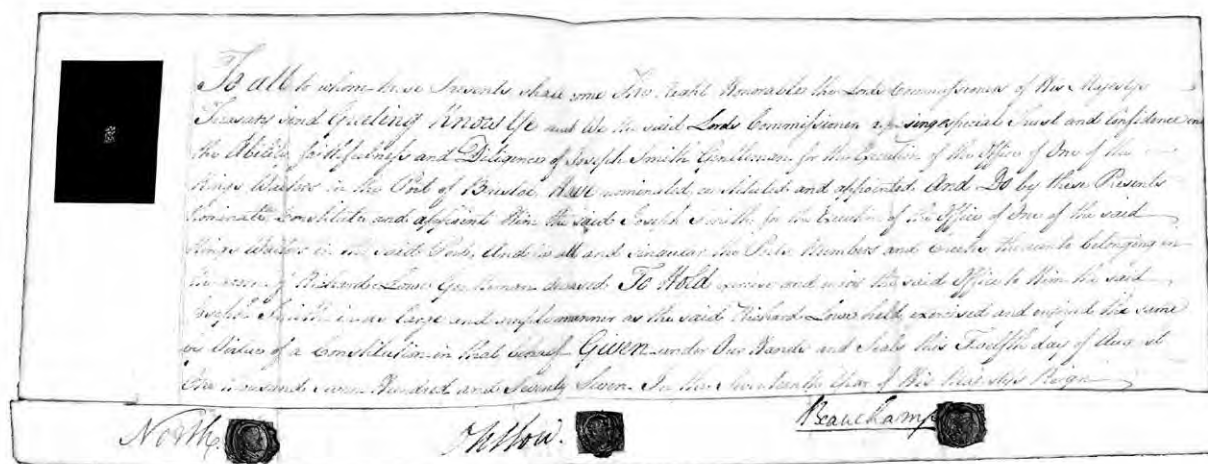 To all to whom these Presents shall come The Right Honorable the Lords Commissioners of His Majestys
Treasury send Greeting Know Ye that We the said Lords Commissioners reposing especial Trust and Confidence in
the Ability faithfulness and Diligence of Joseph Smith Gentleman for the Execution of the Office of One of the
Kings Waiters in the Port of Bristol Have nominated constituted and appointed And Do by these Presents
Nominate Constitute and appoint Him the said Joseph Smith for the Execution of the Office of One of the said
Kings Waiters in the said Port, And in all and singular the Ports Members and Creeks thereunto belonging in
the room of Richard Lowe Gentleman deceased To Hold exercise and enjoy the said Office to Him the said
Joseph Smith in as large and ample manner as the said Richard Lowe held, exercised and enjoyed the same
by Virtue of a Constitution in that behalf Given under Our Hands and Seals this Twelfth day of August
One thousand Seven Hundred and Seventy Seven In the Seventeenth Year of His Majestys Reign
North. Beauchamp